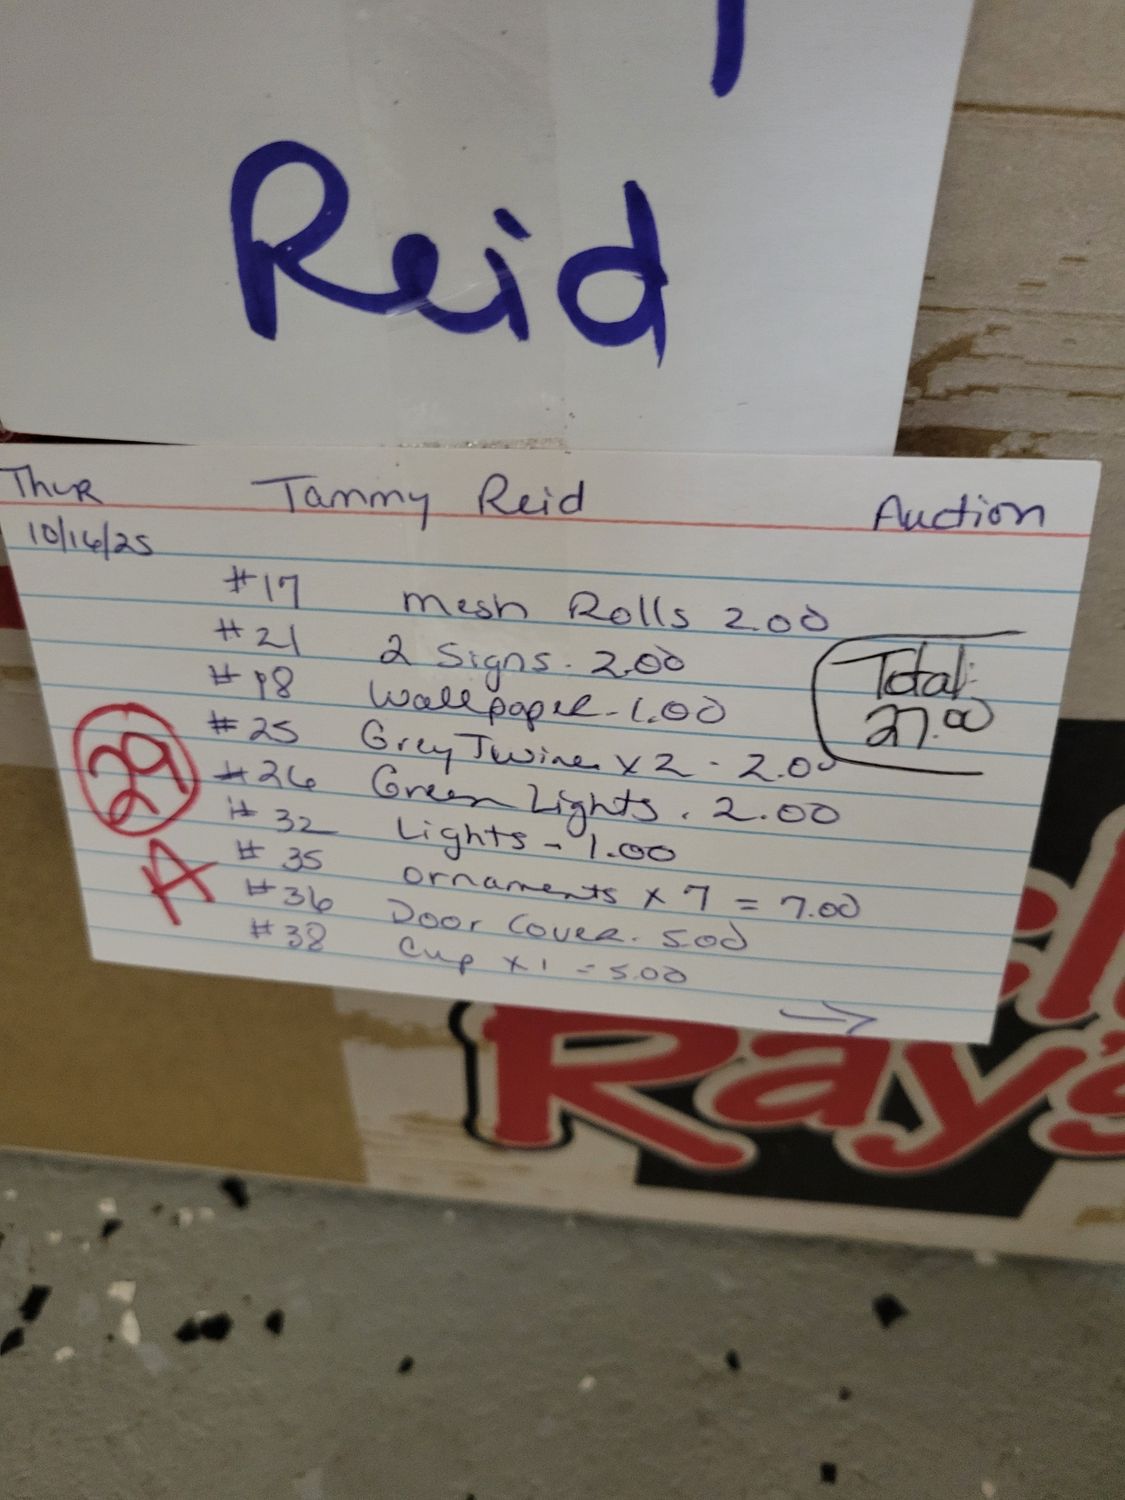 Reid
Thur Tammy Reid Auction
10/16/25
#17 Mesh Rolls 2.00
#21 2 Signs. 2.00
#18 Wallpaper - 1.00
Total:
27.00
#25 Grey Twine x 2 - 2.00
#26 Green Lights. 2.00
29
A
#32 Lights - 1.00
#35 ornaments x 7 = 7.00
#36 Door Cover. 5.00
#38 Cup x 1 = 5.00
→
Ray's